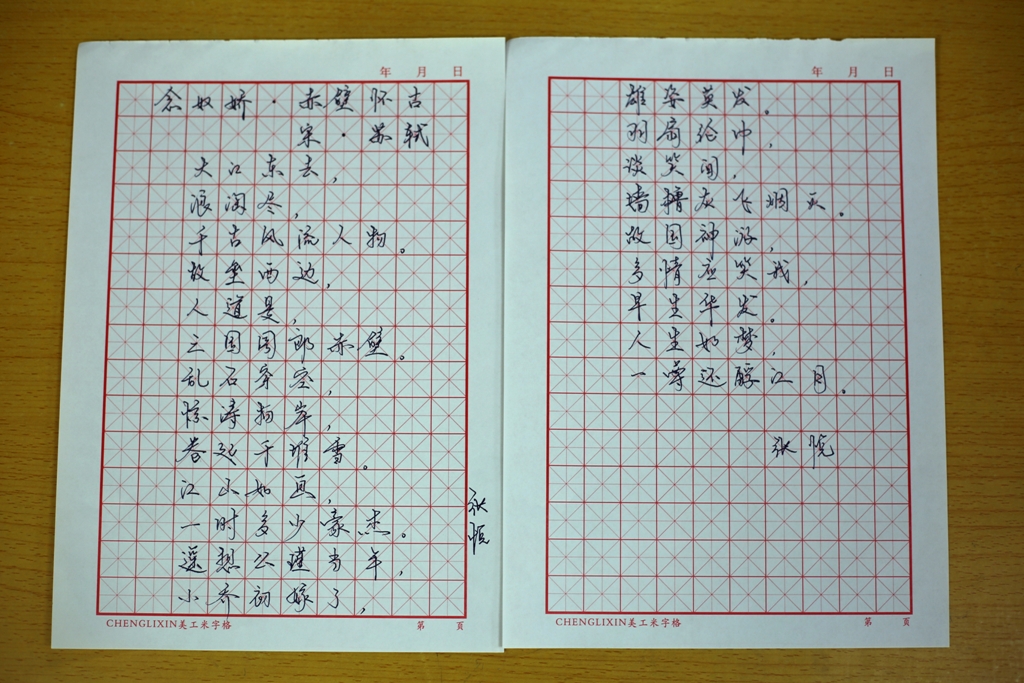 年 月 日
念奴娇·赤壁怀古
宋·苏轼
大江东去，
浪淘尽，
千古风流人物。
故垒西边，
人道是，
三国周郎赤壁。
乱石穿空，
惊涛拍岸，
卷起千堆雪。
江山如画，
一时多少豪杰。
遥想公瑾当年，
小乔初嫁了，
张悦
CHENGLIXIN美工米字格 第 页
年 月 日
雄姿英发。
羽扇纶巾，
谈笑间，
墙橹灰飞烟灭。
故国神游，
多情应笑我，
早生华发。
人生如梦，
一樽还酹江月。
张悦
CHENGLIXIN美工米字格 第 页